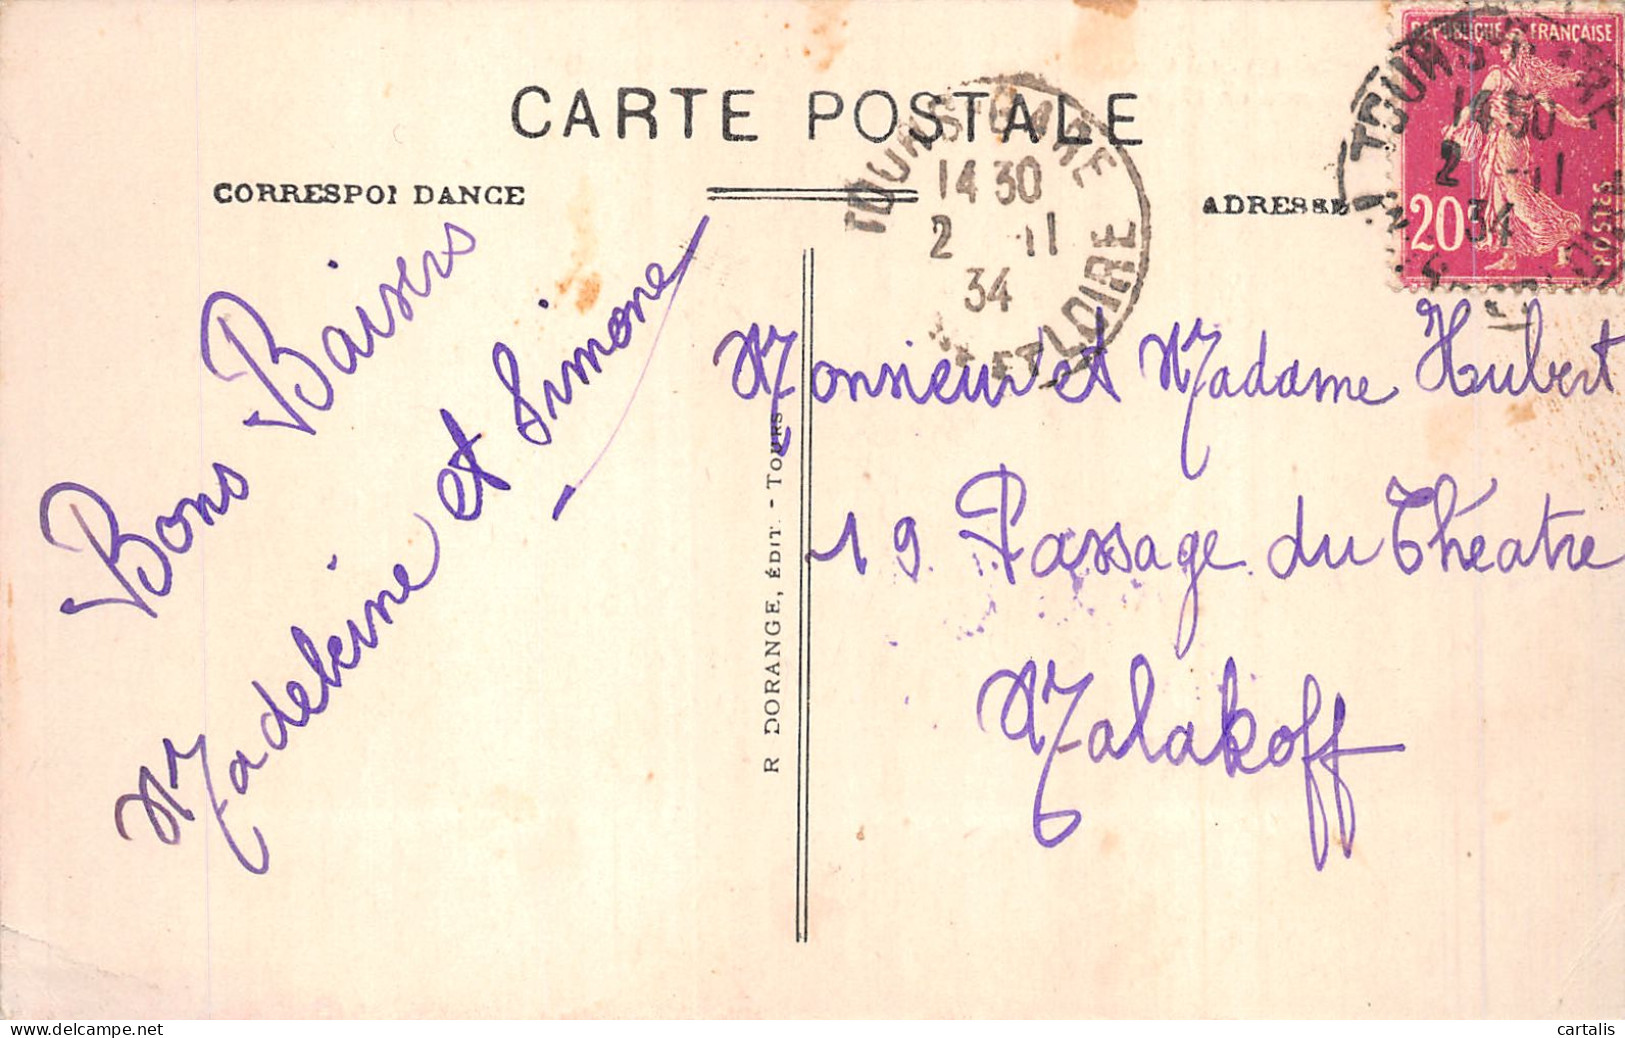 CARTE POSTALE
CORRESPONDANCE
ADRESSE
TOURS-GARE
14 30
2 11
34
ET LOIRE
RÉPUBLIQUE FRANÇAISE
20c
POSTES
TOURS GARE
14 30
2 11
34
Bons Baisers
Madeleine et Simone
Monsieur et Madame Hubert
19 Passage du Théatre
Malakoff
R DORANGE, ÉDIT. - TOURS
delcampe.net
cartalis